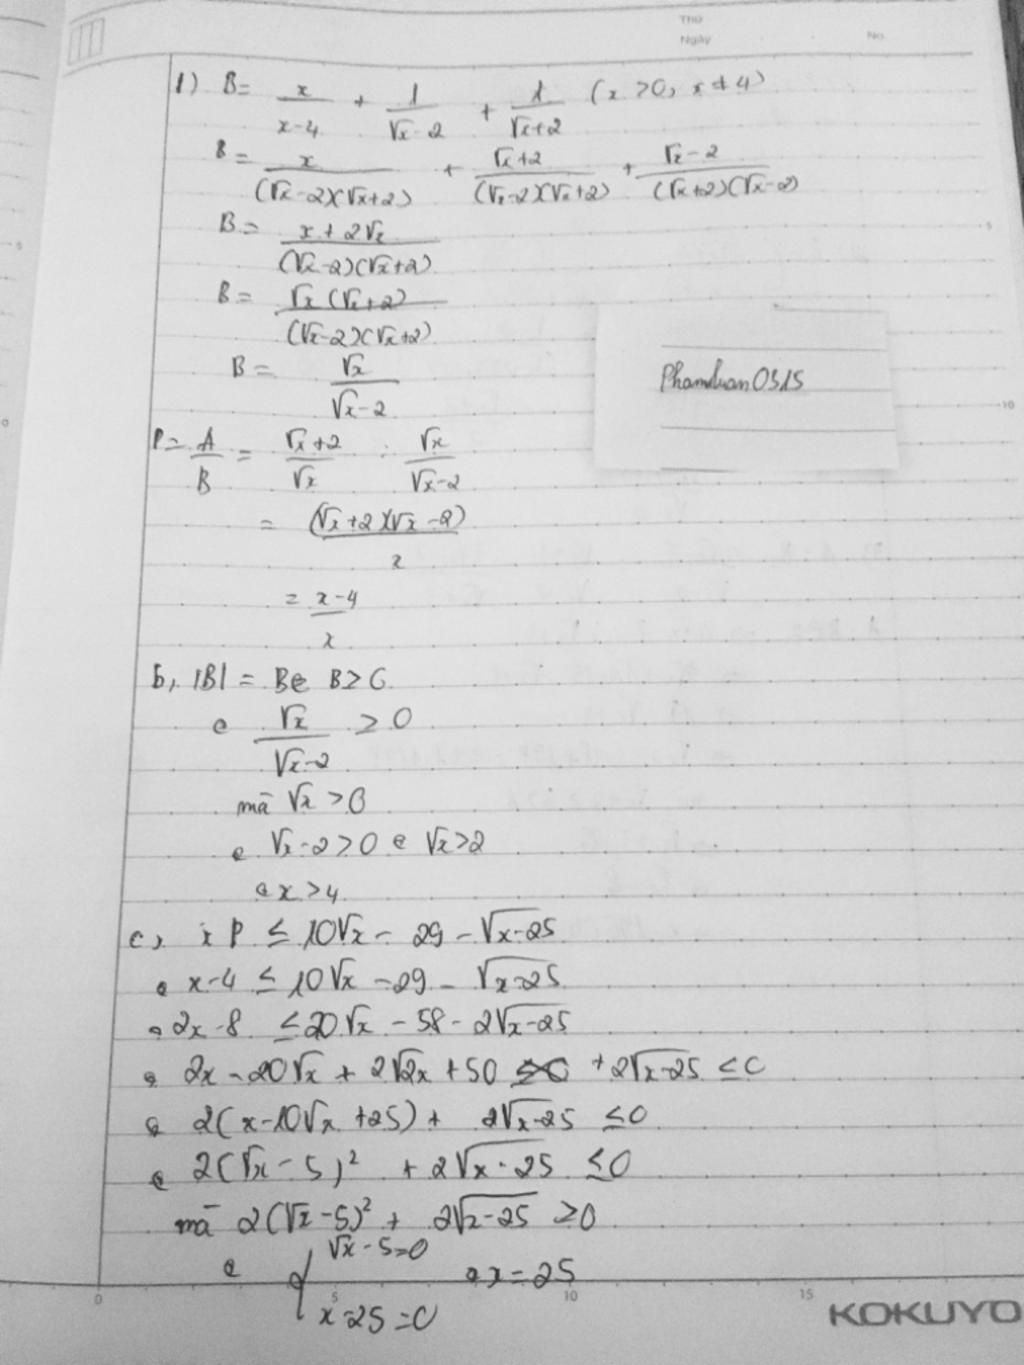 Thứ
Ngày No.
1) B = x/(x-4) + 1/(√x-2) + 1/(√x+2) (x>0, x≠4)
B = x/((√x-2)(√x+2)) + (√x+2)/((√x-2)(√x+2)) + (√x-2)/((√x+2)(√x-2))
B = (x+2√x)/((√x-2)(√x+2))
B = √x(√x+2)/((√x-2)(√x+2))
B = √x/(√x-2)
Phamduan0315
P = A/B = (√x+2)/√x : √x/(√x-2)
= (√x+2)(√x-2)/x
= (x-4)/x
b, |B| = B ⇔ B ≥ 0
⇔ √x/(√x-2) ≥ 0
mà √x > 0
⇔ √x-2 > 0 ⇔ √x > 2
⇔ x > 4
c, xP ≤ 10√x - 29 - √(x-25)
⇔ x-4 ≤ 10√x - 29 - √(x-25)
⇔ 2x-8 ≤ 20√x - 58 - 2√(x-25)
⇔ 2x - 20√x + 2√2x + 50 + 2√(x-25) ≤ 0
⇔ 2(x-10√x+25) + 2√(x-25) ≤ 0
⇔ 2(√x-5)² + 2√(x-25) ≤ 0
mà 2(√x-5)² + 2√(x-25) ≥ 0
⇔ { √x-5=0
x-25=0 ⇔ x=25
0 5 10 15
KOKUYO